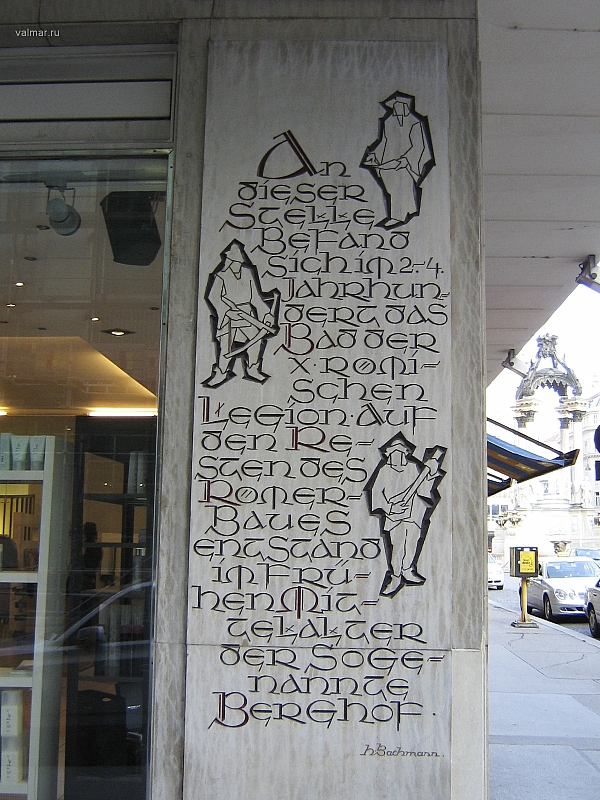 valmar.ru
An
dieser
Stelle
Befand
sich im 2.-4.
Jahrhun-
dert das
Bad der
X. Romi-
schen
Legion. Auf
den Re-
sten des
Römer-
Baues
entstand
im Frü-
hen Mit-
telalter
der Soge-
nannte
Berghof.
H. Bachmann.